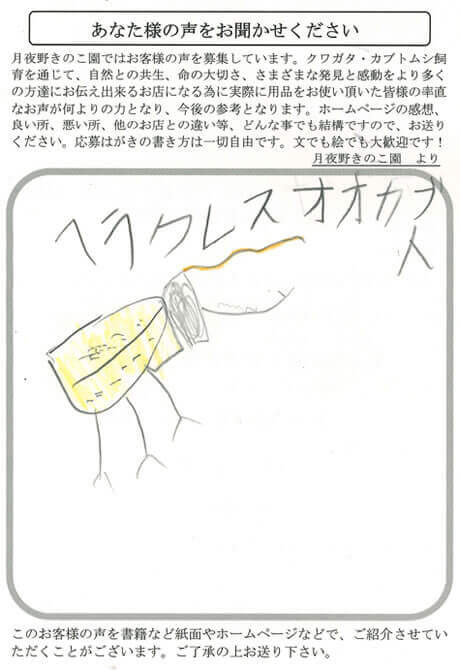 あなた様の声をお聞かせください
月夜野きのこ園ではお客様の声を募集しています。クワガタ・カブトムシ飼
育を通じて、自然との共生、命の大切さ、さまざまな発見と感動をより多く
の方達にお伝え出来るお店になる為に実際に用品をお使い頂いた皆様の率直
なお声が何よりの力となり、今後の参考となります。ホームページの感想、
良い所、悪い所、他のお店との違い等、どんな事でも結構ですので、お送り
ください。応募はがきの書き方は一切自由です。文でも絵でも大歓迎です！
月夜野きのこ園　より
ヘラクレスオオカブ
ト
このお客様の声を書籍など紙面やホームページなどで、ご紹介させてい
ただくことがございます。ご了承の上お送り下さい。